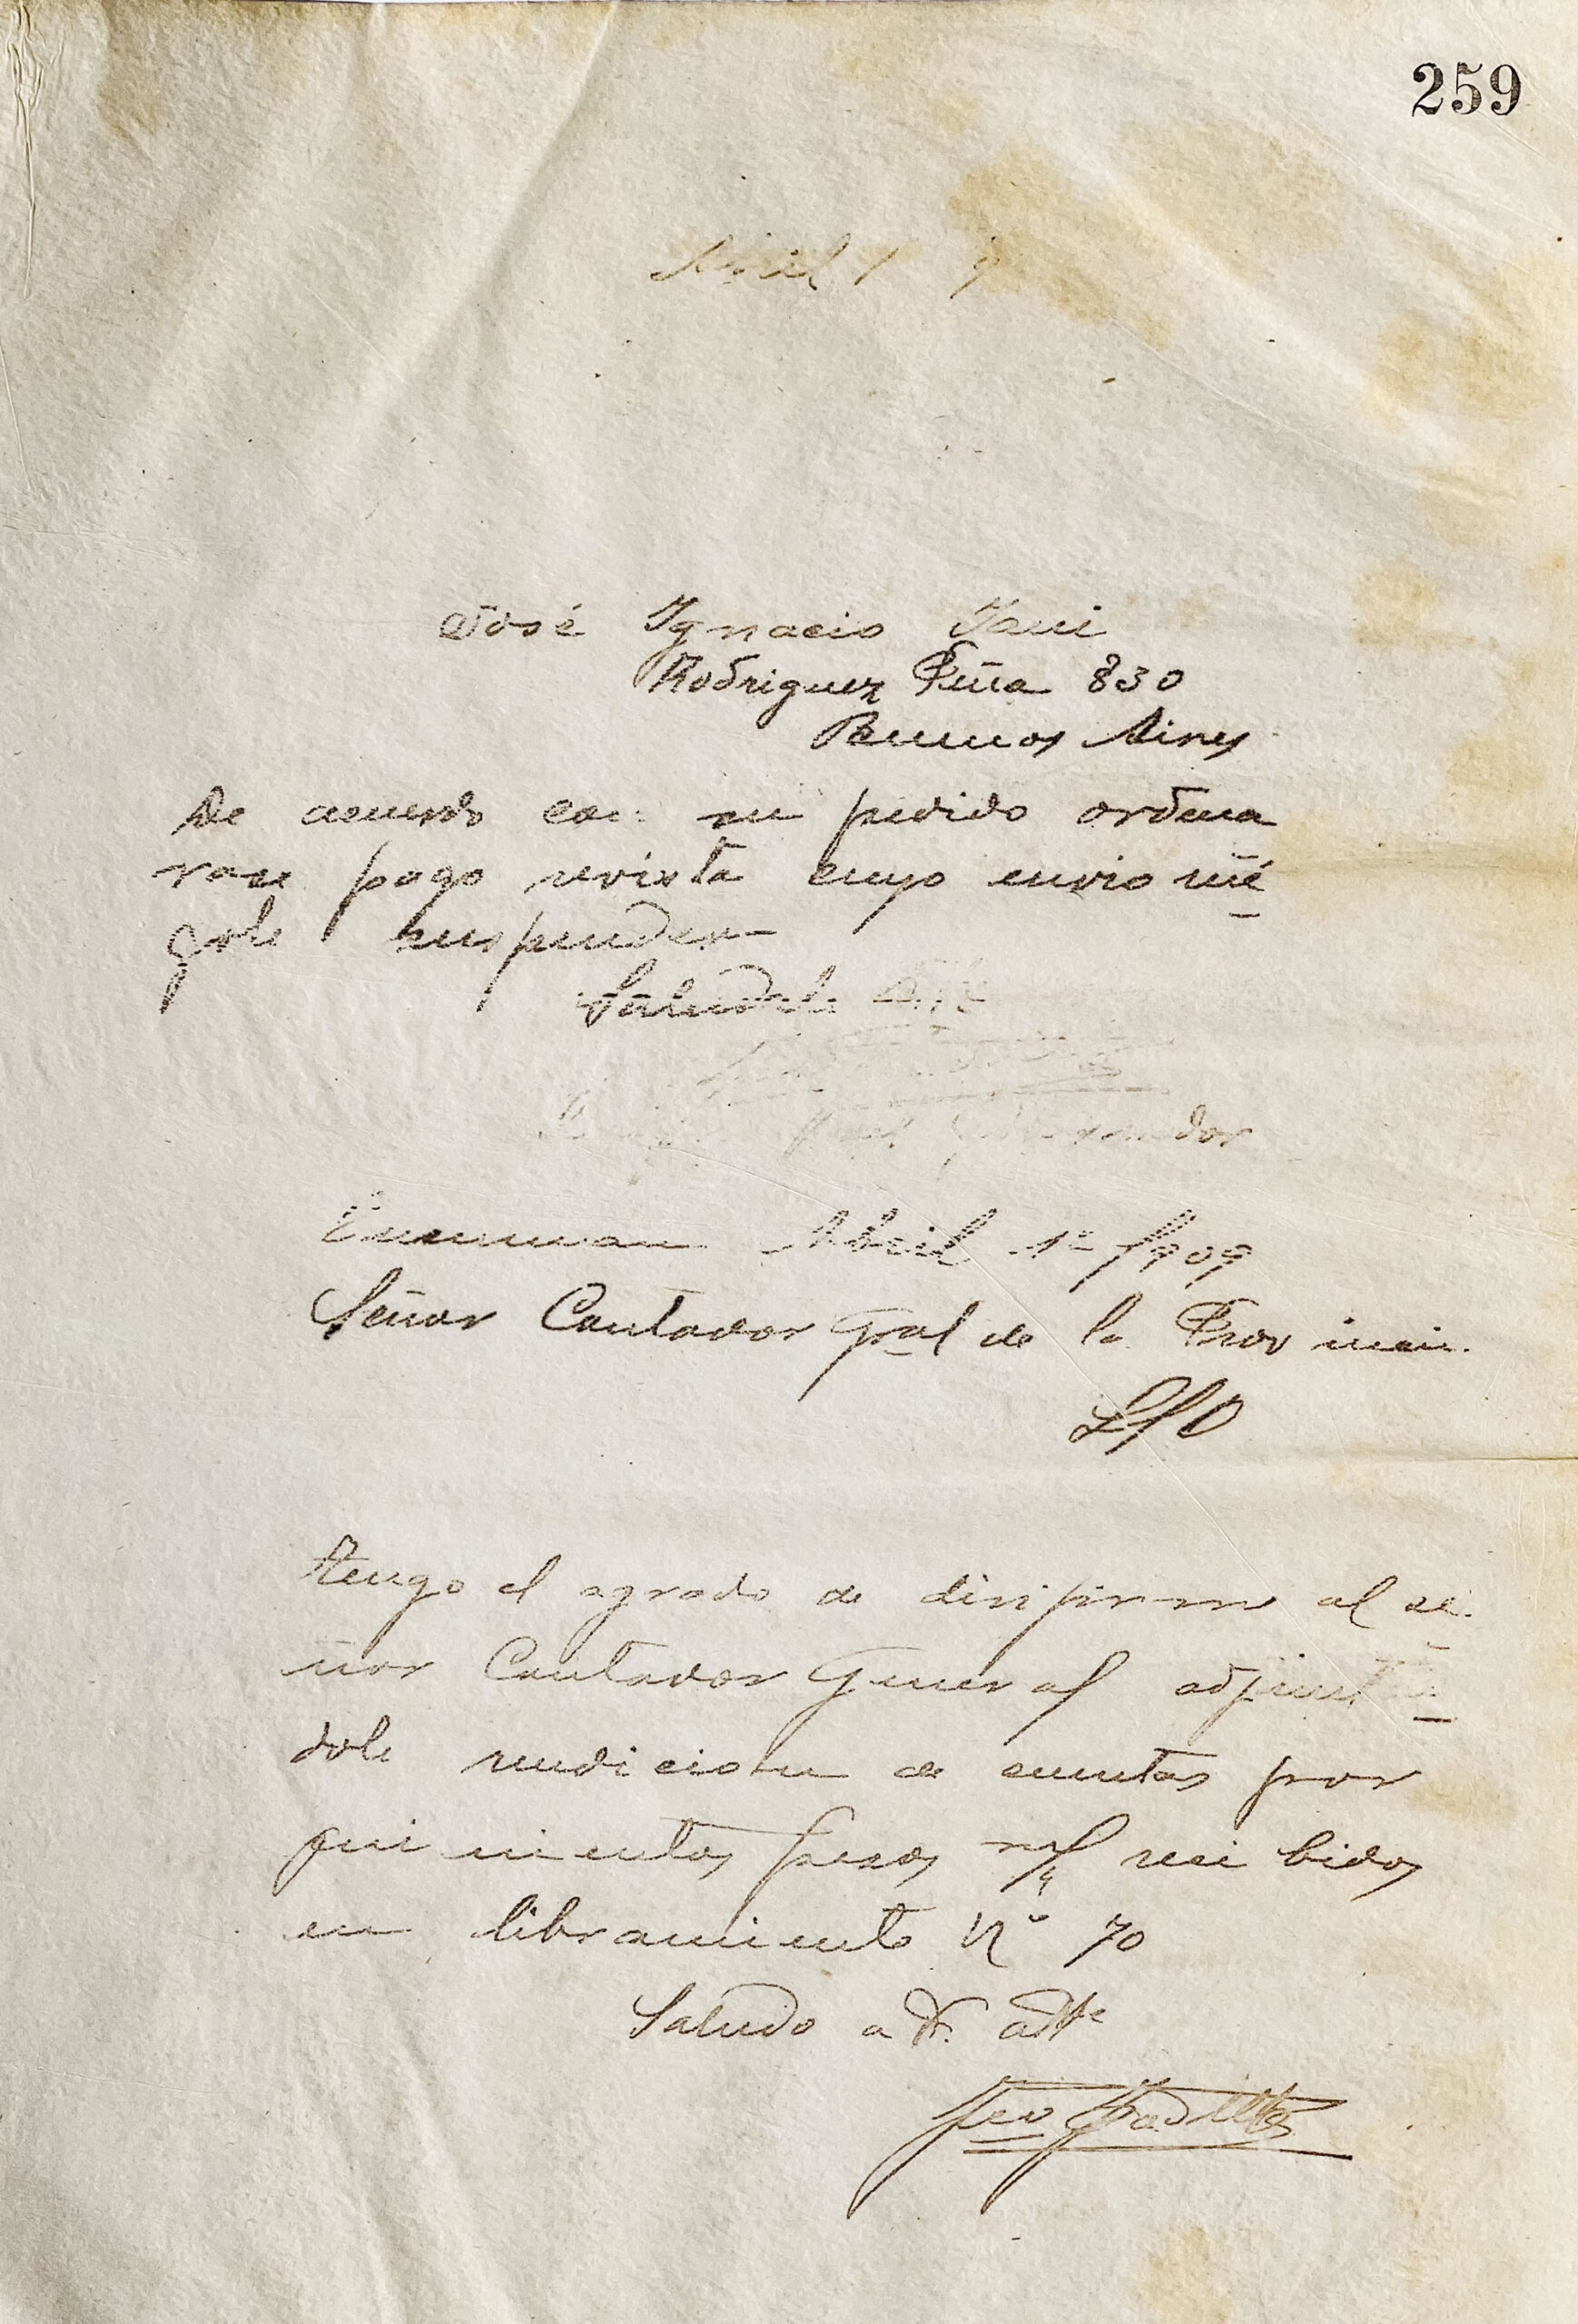 259
Abril 1
José Ignacio
Rodriguez Peña 830
Buenos Aires
De acuerdo con su pedido ordena
rase pago revista cuyo envio rué
gole suspender
Salúdale
dor
Tucuman Abril 1º /909
Señor Contador Gral de la Provincia
S/D
Tengo el agrado de dirijirme al se
ñor Contador General adjuntan
dole rendicion de cuentas por
quinientos pesos m/n recibidos
en libramiento Nº 70
Saludo a Vd. atte